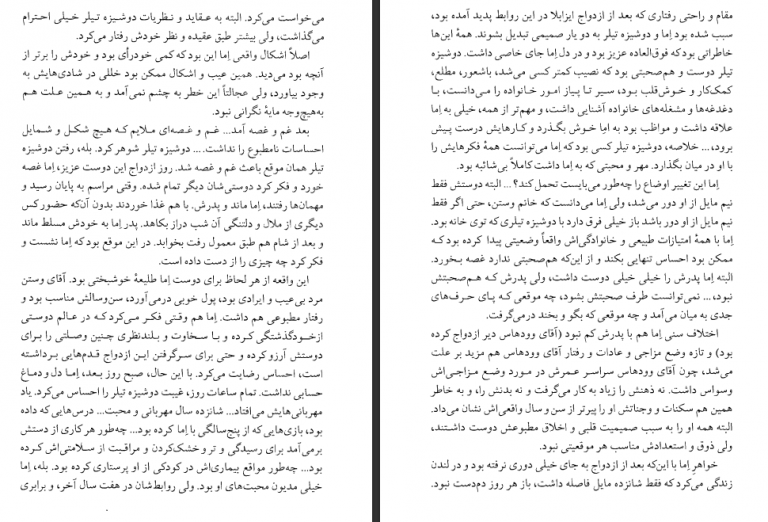 می‌خواست می‌کرد. البته به عقاید و نظریات دوشیزه تیلر خیلی احترام
می‌گذاشت، ولی بیشتر طبق عقیده و نظر خودش رفتار می‌کرد.
اصلاً اشکال واقعی اِما این بود که کمی خودرأی بود و خودش را برتر از
آنچه بود می‌دید. همین عیب و اشکال ممکن بود خللی در شادی‌هایش به
وجود بیاورد، ولی عجالتاً این خطر به چشم نمی‌آمد و به همین علت هم
به‌هیچ‌وجه مایهٔ نگرانی نبود.
بعد غم و غصه آمد... غم و غصه‌ای ملایم که هیچ شکل و شمایل
احساسات نامطبوع را نداشت. ... دوشیزه تیلر شوهر کرد. بله، رفتن دوشیزه
تیلر همان موقع باعث غم و غصه شد. روز ازدواج این دوست عزیز، اِما غصه
خورد و فکر کرد دوستی‌شان دیگر تمام شده. وقتی مراسم به پایان رسید و
مهمان‌ها رفتند، اِما ماند و پدرش. با هم غذا خوردند بدون آن‌که حضور کس
دیگری از ملال و دلتنگی آن شب دراز بکاهد. پدر اِما به خودش مسلط ماند
و بعد از شام هم طبق معمول رفت بخوابد. در این موقع بود که اِما نشست و
فکر کرد چه چیزی را از دست داده است.
این واقعه از هر لحاظ برای دوست اِما طلیعهٔ خوشبختی بود. آقای وستن
مرد بی‌عیب و ایرادی بود، پول خوبی درمی‌آورد، سن‌وسالش مناسب بود و
رفتار مطبوعی هم داشت. اِما هم وقتی فکر می‌کرد که در عالم دوستی
ازخودگذشتگی کرده و با سخاوت و بلندنظری چنین وصلتی را برای
دوستش آرزو کرده و حتی برای سرگرفتن این ازدواج قدم‌هایی برداشته
است، احساس رضایت می‌کرد. با این حال، صبح روز بعد، اِما دل و دماغ
حسابی نداشت. تمام ساعات روز، غیبت دوشیزه تیلر را احساس می‌کرد. یاد
مهربانی‌هایش می‌افتاد... شانزده سال مهربانی و محبت... درس‌هایی که داده
بود، بازی‌هایی که از پنج‌سالگی با اِما کرده بود... چه‌طور هر کاری از دستش
برمی‌آمد برای رسیدگی و تر و خشک‌کردن و مراقبت از سلامتی‌اش کرده
بود... چه‌طور مواقع بیماری‌اش در کودکی از او پرستاری کرده بود. بله، اِما
خیلی مدیون محبت‌های او بود. ولی روابط‌شان در هفت سال آخر، و برابری
مقام و راحتی رفتاری که بعد از ازدواج ایزابلا در این روابط پدید آمده بود،
سبب شده بود اِما و دوشیزه تیلر به دو یار صمیمی تبدیل بشوند. همهٔ این‌ها
خاطراتی بود که فوق‌العاده عزیز بود و در دل اِما جای خاصی داشت. دوشیزه
تیلر دوست و هم‌صحبتی بود که نصیب کمتر کسی می‌شد، باشعور، مطلع،
کمک‌کار و خوش‌قلب بود، سیر تا پیاز امور خانواده را می‌دانست، با
دغدغه‌ها و مشغله‌های خانواده آشنایی داشت، و مهم‌تر از همه، خیلی به اِما
علاقه داشت و مواظب بود به اِما خوش بگذرد و کارهایش درست پیش
برود، ... خلاصه، دوشیزه تیلر کسی بود که اِما می‌توانست همهٔ فکرهایش را
با او در میان بگذارد. مهر و محبتی که به اِما داشت کاملاً بی‌شائبه بود.
اِما این تغییر اوضاع را چه‌طور می‌بایست تحمل کند؟ ... البته دوستش فقط
نیم مایل از او دور می‌شد، ولی اِما می‌دانست که خانم وستن، حتی اگر فقط
نیم مایل از او دور باشد باز خیلی فرق دارد با دوشیزه تیلری که توی خانه بود.
اِما با همهٔ امتیازات طبیعی و خانوادگی‌اش واقعاً وضعیتی پیدا کرده بود که
ممکن بود احساس تنهایی بکند و از این‌که هم‌صحبتی ندارد غصه بخورد.
البته اِما پدرش را خیلی خیلی دوست داشت، ولی پدرش که هم‌صحبتش
نبود، ... نمی‌توانست طرف صحبتش بشود، چه موقعی که پای حرف‌های
جدی به میان می‌آمد و چه موقعی که بگو و بخند درمی‌گرفت.
اختلاف سنی اِما هم با پدرش کم نبود (آقای وودهاس دیر ازدواج کرده
بود) و تازه وضع مزاجی و عادات و رفتار آقای وودهاس هم مزید بر علت
می‌شد، چون آقای وودهاس سراسر عمرش در مورد وضع مزاجی‌اش
وسواس داشت. نه ذهنش را زیاد به کار می‌گرفت و نه بدنش را، و به خاطر
همین هم سکنات و وجناتش او را پیرتر از سن و سال واقعی‌اش نشان می‌داد.
البته همه او را به سبب صمیمیت قلبی و اخلاق مطبوعش دوست داشتند،
ولی ذوق و استعدادش مناسب هر موقعیتی نبود.
خواهر اِما با این‌که بعد از ازدواج به جای خیلی دوری نرفته بود و در لندن
زندگی می‌کرد که فقط شانزده مایل فاصله داشت، باز هر روز دم‌دست نبود.